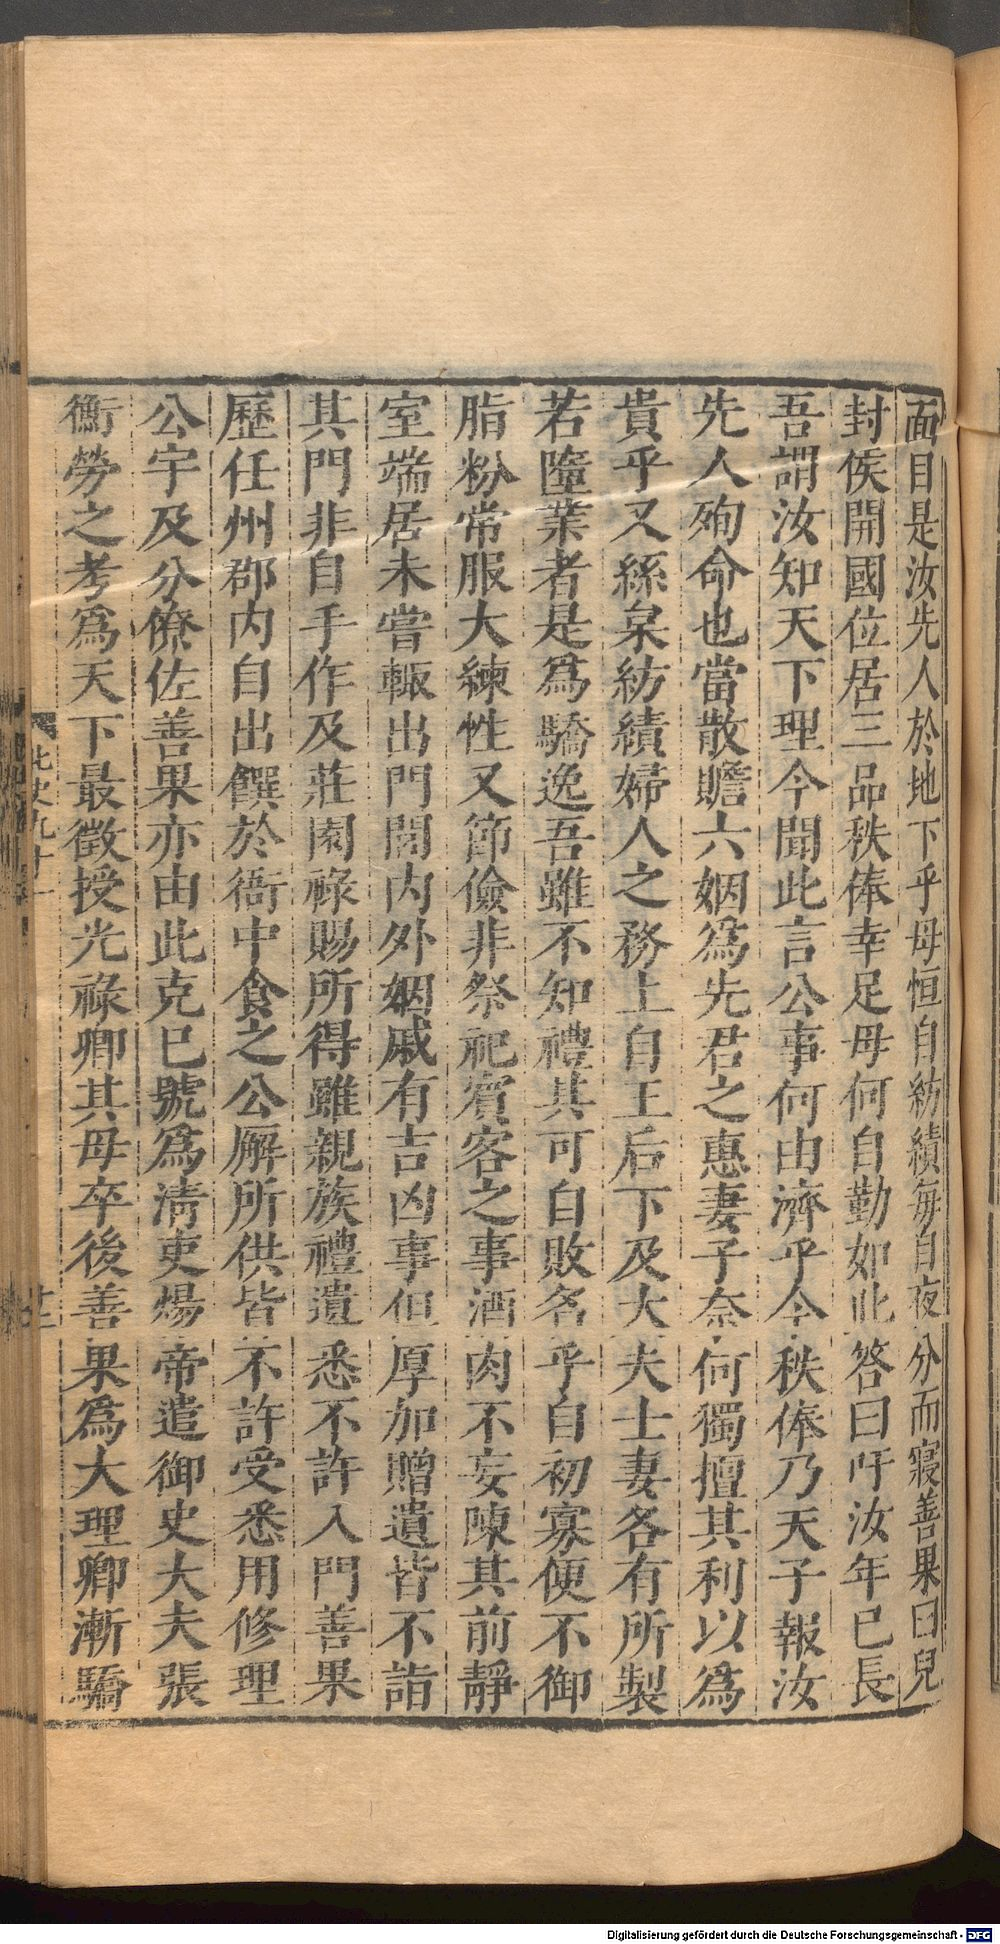 面目是汝先人於地下乎母恒自紡績每自夜分而寢善果曰兒
封侯開國位居三品秩俸幸足母何自勤如此答曰吁汝年已長
吾謂汝知天下理今聞此言公事何由濟乎今秩俸乃天子報汝
先人殉命也當散贍六姻為先君之惠妻子奈何獨擅其利以為
貴乎又絲枲紡績婦人之務上自王后下及大夫士妻各有所製
若墮業者是為驕逸吾雖不知禮其可自敗名乎自初寡便不御
脂粉常服大練性又節儉非祭祀賓客之事酒肉不妄陳其前靜
室端居未嘗輙出門閤內外姻戚有吉凶事但厚加贈遺皆不詣
其門非自手作及莊園祿賜所得雖親族禮遺悉不許入門善果
歷任州郡內自出饌於衙中食之公廨所供皆不許受悉用修理
公宇及分僚佐善果亦由此克已號為清吏煬帝遣御史大夫張
衡勞之考為天下最徵授光祿卿其母卒後善果為大理卿漸驕
北史九十一
十二
Digitalisierung gefördert durch die Deutsche Forschungsgemeinschaft - DFG